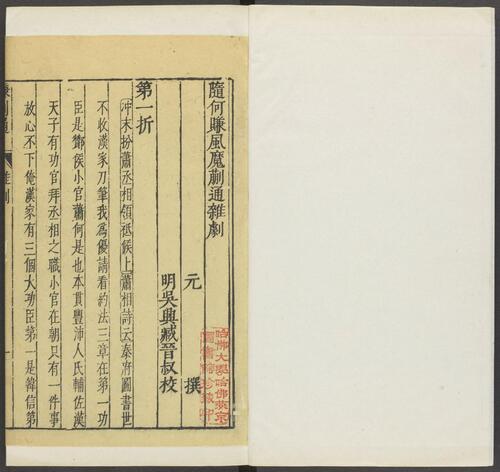 隨何賺風魔蒯通雜劇
元 撰
明吳興臧晉叔校
第一折
沖末扮蕭丞相領祗候上蕭相詩云秦府圖書世
不收漢家刀筆我爲優請看約法三章在第一功
臣是酇侯小官蕭何是也本貫豐沛人氏輔佐漢
天子有功官拜丞相之職小官在朝只有一件事
放心不下俺漢家有三個大功臣第一是韓信第
賺蒯通 雜劇 一
哈佛大學哈佛燕京
圖書館珍藏印